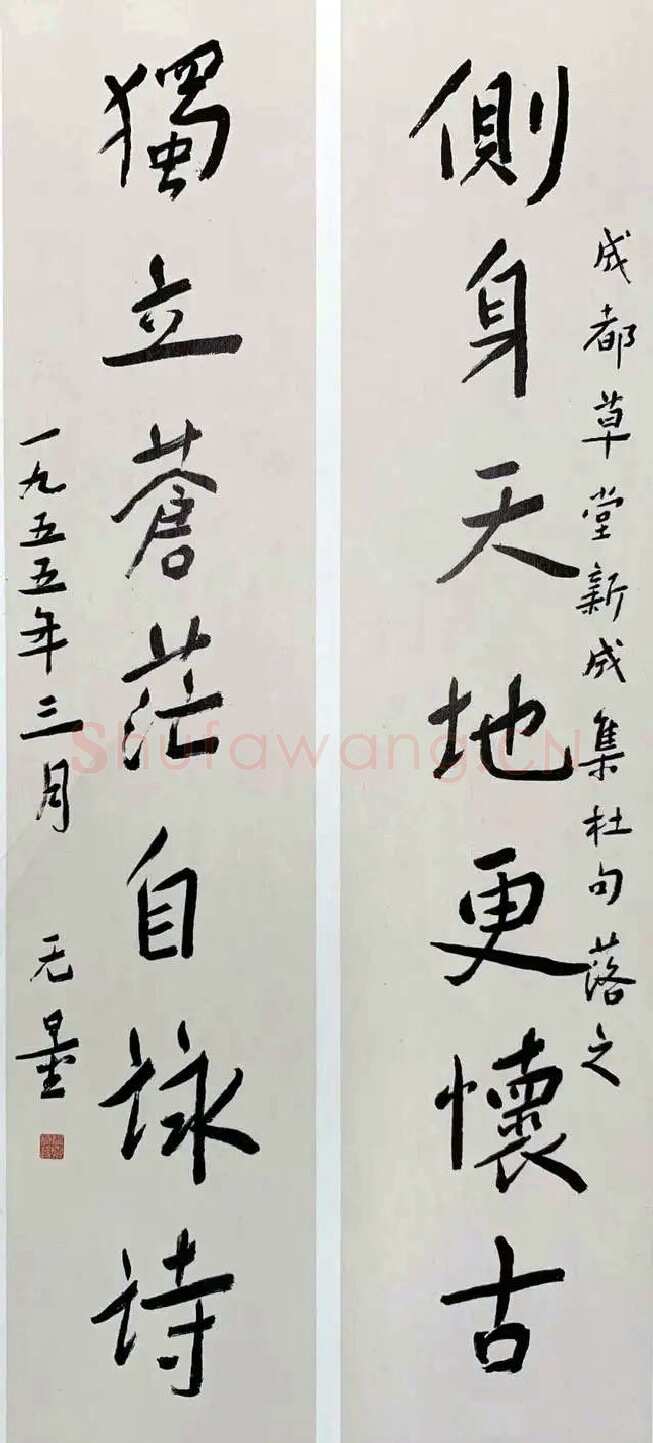 成都草堂新成集杜句落之
側身天地更懷古
獨立蒼茫自詠诗
一九五五年三月 无量
Shufawang.CN